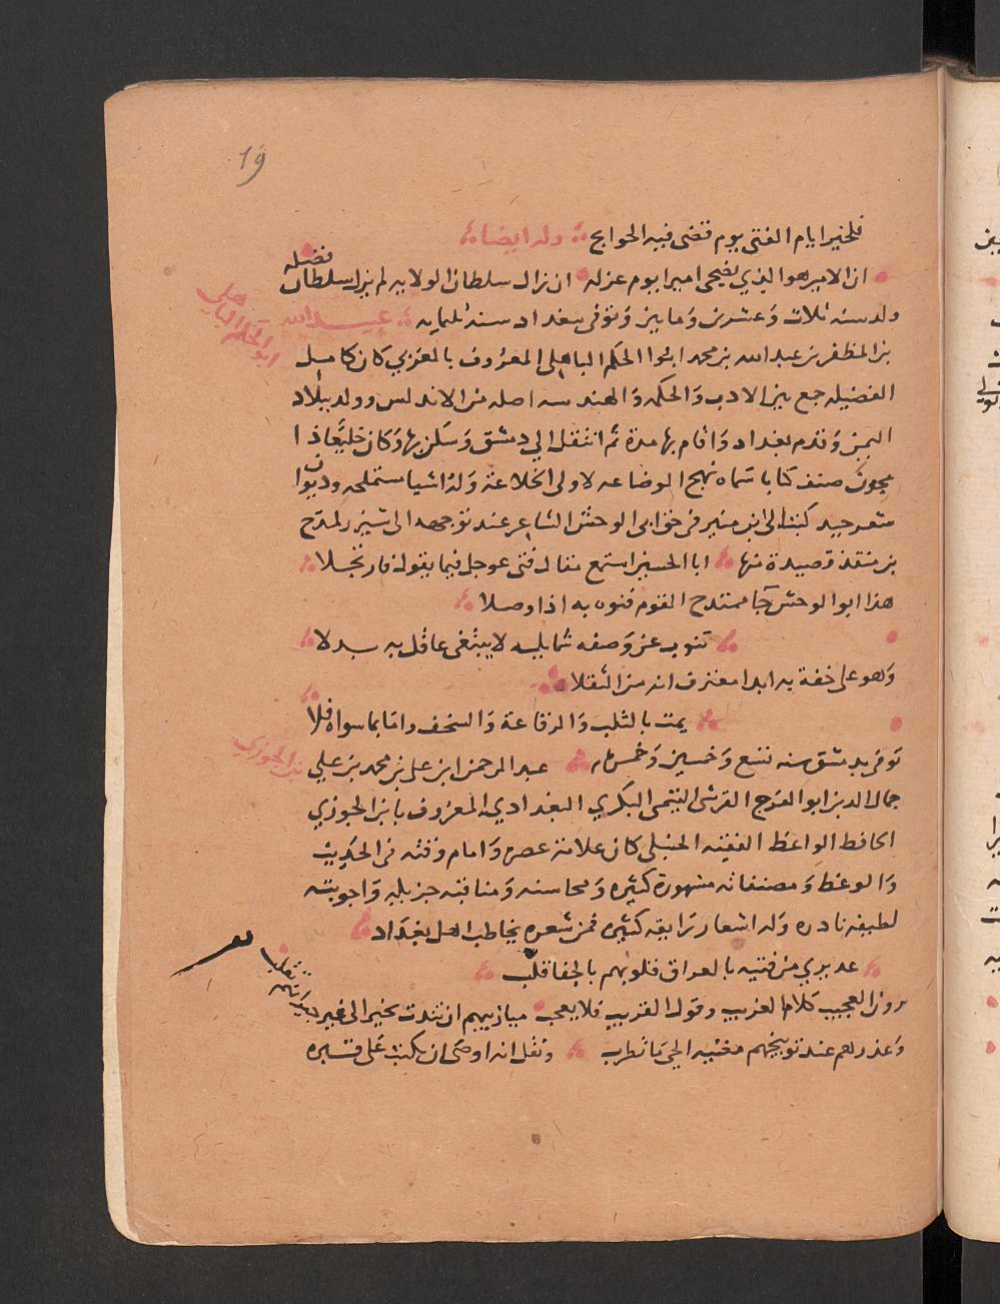 19
فلخير ايام الفتى يوم قضى فيه الحوايج وله ايضا
ان الامير هو الذي يضحى اميرا يوم عزله ان زال سلطان الولايه لم يزل سلطان فضله
ولد سنه ثلاث وعشرين ومايتين وتوفى ببغداد سنة ثلثمايه عبيد الله
ابو الحكم الباهلي
بن المظفر بن عبد الله بن محمد ابو الحكم الباهلى المعروف بالمغربي كان كامل
الفضيله جمع بين الادب والحكمه والهندسه اصله من الاندلس وولد ببلاد
اليمن وقدم بغداد واقام بها مدة ثم انتقل الى دمشق وسكن بها وكان خليعا ذا
مجون صنف كتابا سماه نهج الوضاعه لاولى الخلاعة وله اشيا مستملحه وديوان
شعر جيد كتب الى ابن منير في حق ابى الوحش الشاعر عند توجهه الى شيزر لمدح
بن منقذ قصيدة منها ابا الحسين استمع مقال فتى عوجل فيما يقول فارتجلا
هذا ابو الوحش جا ممتدح القوم فنوه به اذا وصلا
تنوب عن وصفه شمايله لا يبتغى عاقل به بدلا
وهو على خفة به ابدا معترف انه من الثقلا
يمت بالثلب والرقاعة والسخف واما بما سواه فلا
توفى بدمشق سنه تسع وخمسين وخمس عبد الرحمن ابن على بن محمد بن علي
بن الجوزي
جمال الدين ابو الفرج القرشى التيمى البكري البغدادي المعروف بابن الجوزي
الحافظ الواعظ الفقيه الحنبلى كان علامة عصره وامام وقته فى الحديث
والوعظ ومصنفاته مشهورة كثيره ومحاسنه ومناقبه جزيله واجوبته
لطيفه نادره وله اشعار رايقه كثيره فمن شعره يخاطب اهل بغداد
عذيري من فتيه بالعراق قلوبهم بالجفا قلب
يرون العجيب كلام الغريب وقول القريب فلا يعجب ميازيبهم ان تندت بخير الى غير جيرانهم تقلب
وعذرهم عند توبيخهم مغنيه الحى ما تطرب ونقل انه اوصى ان يكتب على قبره